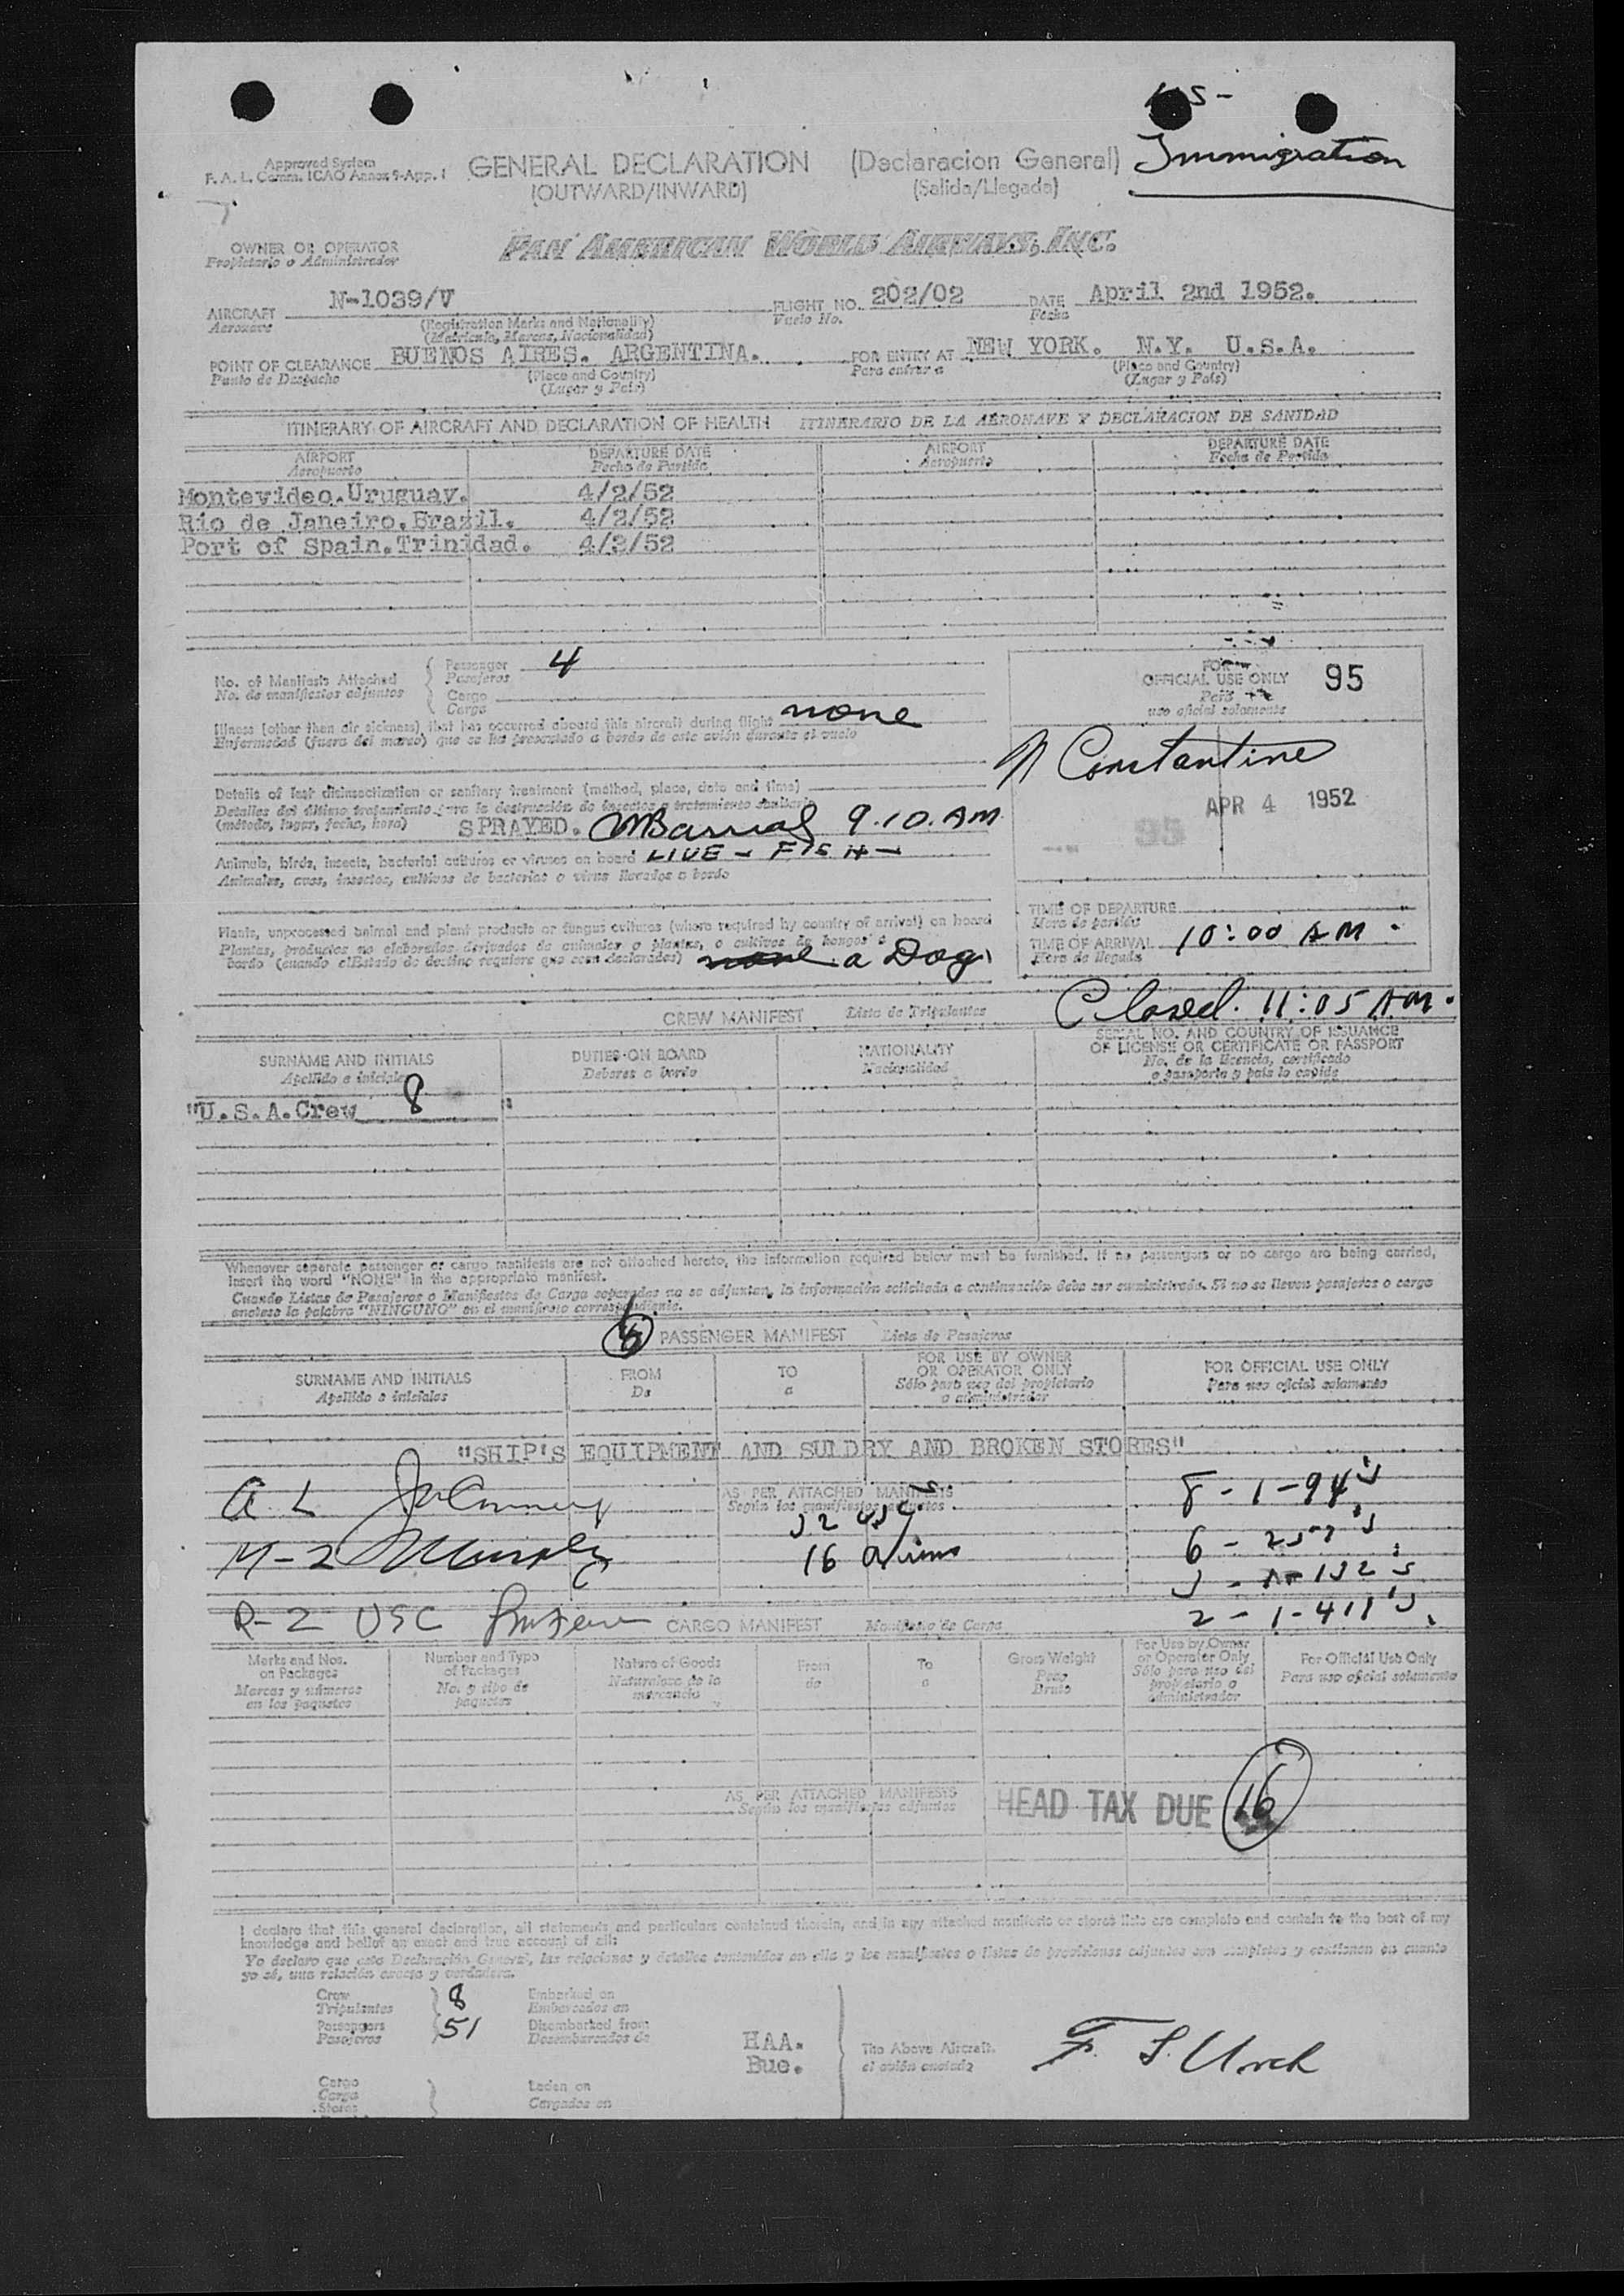 S-
Immigration
Approved System
F. A. L. Comm. ICAO Annex 9-App. 1
GENERAL DECLARATION (Declaracion General)
(OUTWARD/INWARD) (Salida/Llegada)
OWNER OR OPERATOR PAN AMERICAN WORLD AIRWAYS, INC.
Propietario o Administrador
AIRCRAFT N-1039/V FLIGHT NO. 202/02 DATE April 2nd 1952.
Aeronave (Registration Marks and Nationality) Vuelo No. Fecha
(Matricula, Marcas, Nacionalidad)
POINT OF CLEARANCE BUENOS AIRES. ARGENTINA. FOR ENTRY AT NEW YORK. N.Y. U.S.A.
Punto de Despacho (Place and Country) Para entrar a (Place and Country)
(Lugar y País) (Lugar y País)
ITINERARY OF AIRCRAFT AND DECLARATION OF HEALTH ITINERARIO DE LA AERONAVE Y DECLARACION DE SANIDAD
AIRPORT DEPARTURE DATE AIRPORT DEPARTURE DATE
Aeropuerto Fecha de Partida Aeropuerto Fecha de Partida
Montevideo.Uruguay. 4/2/52
Rio de Janeiro.Brazil. 4/2/52
Port of Spain.Trinidad. 4/3/52
No. of Manifests Attached Passenger 4
No. de manifiestos adjuntos Pasajeros
Cargo
Carga
FOR
OFFICIAL USE ONLY 95
Para
uso oficial solamente
Illness (other than air sickness) that has occurred aboard this aircraft during flight none
Enfermedad (fuera del mareo) que se ha presentado a bordo de este avión durante el vuelo
N Constantine
Details of last disinsectization or sanitary treatment (method, place, date and time)
Detalles del último tratamiento para la destrucción de insectos o tratamiento sanitario
(método, lugar, fecha, hora) SPRAYED. 9.10. AM
APR 4 1952
95
Animals, birds, insects, bacterial cultures or viruses on board LIVE - FISH -
Animales, aves, insectos, cultivos de bacterias o virus llevados a bordo
Plants, unprocessed animal and plant products or fungus cultures (where required by country of arrival) on board
Plantas, productos no elaborados derivados de animales o plantas, o cultivos de hongos a
bordo (cuando el Estado de destino requiere que sean declarados) none a Dog
TIME OF DEPARTURE
Hora de partida
TIME OF ARRIVAL 10:00 AM.
Hora de llegada
Closed. 11:05 AM.
CREW MANIFEST Lista de Tripulantes
SURNAME AND INITIALS DUTIES ON BOARD NATIONALITY SERIAL NO. AND COUNTRY OF ISSUANCE
OF LICENSE OR CERTIFICATE OR PASSPORT
Apellido e iniciales Deberes a bordo Nacionalidad No. de la licencia, certificado
o pasaporte y país lo expide
"U.S.A.Crew 8 "
Whenever separate passenger or cargo manifests are not attached hereto, the information required below must be furnished. If no passengers or no cargo are being carried,
insert the word "NONE" in the appropriate manifest.
Cuando Listas de Pasajeros o Manifiestos de Carga separadas no se adjuntan, la información solicitada a continuación debe ser suministrada. Si no se lleven pasajeros o carga
anótese la palabra "NINGUNO" en el manifiesto correspondiente.
PASSENGER MANIFEST Lista de Pasajeros
SURNAME AND INITIALS FROM TO FOR USE BY OWNER
OR OPERATOR ONLY FOR OFFICIAL USE ONLY
Apellido e iniciales De a Sólo para uso del propietario
o administrador Para uso oficial solamente
"SHIP'S EQUIPMENT AND SUNDRY AND BROKEN STORES"
A L
AS PER ATTACHED MANIFESTS
Según los manifiestos adjuntos
8 - 1-94's
M-2 Murphy 16 Aliens 6 - 257's
R-2 USC 2 - 1-411's.
CARGO MANIFEST Manifiesto de Carga
Marks and Nos.
on Packages
Marcas y números
en los paquetes
Number and Type
of Packages
No. y tipo de
paquetes
Nature of Goods
Naturaleza de la
mercancía
From
de
To
a
Gross Weight
Peso
Bruto
For Use by Owner
or Operator Only
Sólo para uso del
propietario o
administrador
For Official Use Only
Para uso oficial solamente
AS PER ATTACHED MANIFESTS
Según los manifiestos adjuntos
HEAD TAX DUE 16
I declare that this general declaration, all statements and particulars contained therein, and in any attached manifests or stores lists are complete and contain to the best of my
knowledge and belief an exact and true account of all:
Yo declaro que esta Declaración General, las relaciones y detalles contenidos en ella y los manifiestos o listas de provisiones adjuntas son completos y contienen en cuanto
yo sé, una relación exacta y verdadera.
Crew 8 Embarked on
Tripulantes Embarcados en
Passengers 51 Disembarked from
Pasajeros Desembarcados de
HAA.
Bue.
The Above Aircraft.
el avión anotado
F. S. Urch
Cargo Laden on
Carga Cargados en
Stores